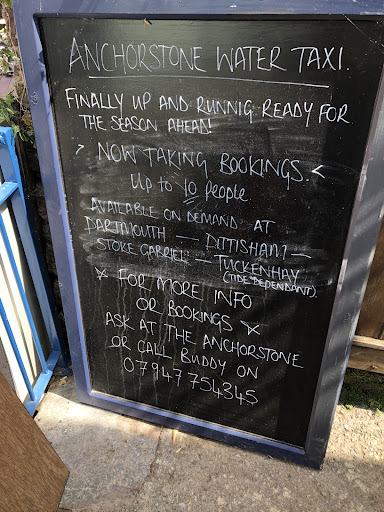 ANCHORSTONE WATER TAXI.
FINALLY UP AND RUNNIG READY FOR
THE SEASON AHEAD!
> NOW TAKING BOOKINGS. <
Up to 10 people
AVAILABLE ON DEMAND AT
DARTMOUTH — DITTISHAM —
STOKE GABRIEL — TUCKENHAY
(TIDE DEPENDANT).
* FOR MORE INFO
OR BOOKINGS *
ASK AT THE ANCHORSTONE
OR CALL BUDDY ON
07947 754345